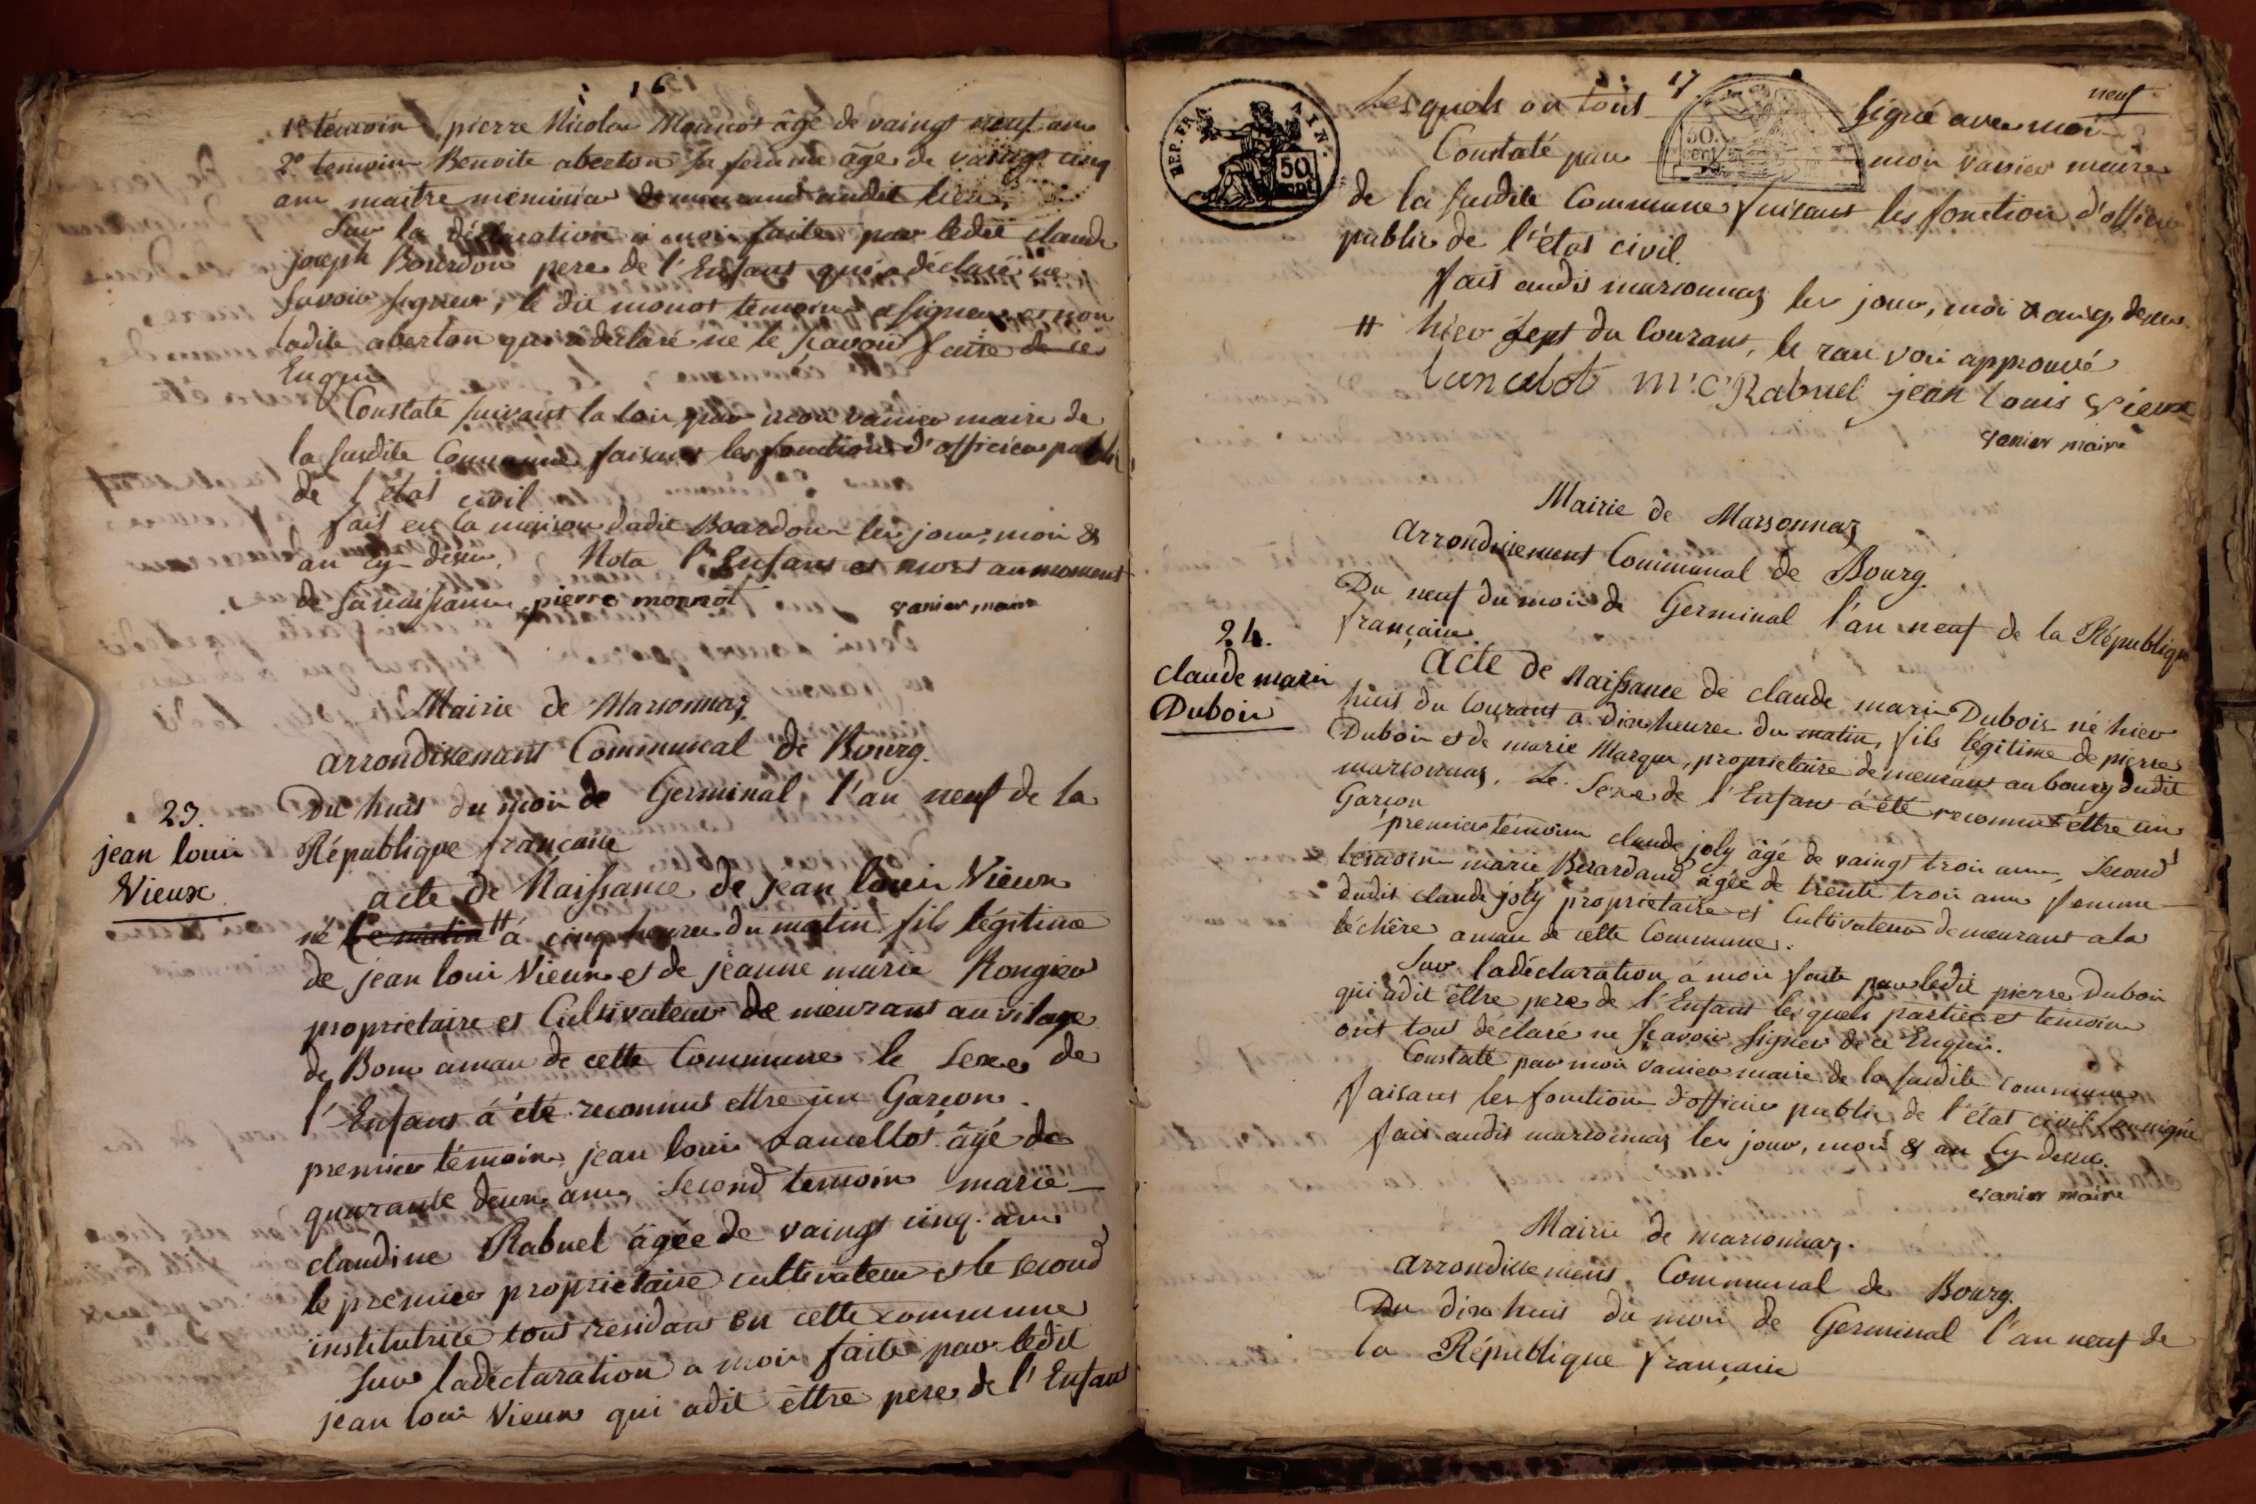 16
1er témoin pierre Nicola Monnot âgé de vaingt neuf ans
2e temoin Benoite aberton sa femme âgé de vaingt cinq
ans maitre menuisier demeurant audit lieu.
Sur la déclaration à moi faite par ledit claude
joseph Bourdon pere de l'Enfant qui a déclaré ne
savoir signer, le dit monot temoin a signer et non
ladite aberton qui a declaré ne le sçavoir faire de ce
Enquis
Constaté suivant la loi par moi vanier maire de
la susdite Commune faisant les fonction d'officier public
de l'état civil
fait en la maison dudit Bourdon les jour, moi &
an cy-desus. Nota l'Enfant et mort au moment
de sa naissance pierre monnot vanier maire
Mairie de Marsonnaz
arrondissement Communal de Bourg.
23.
jean loui
Vieux
Du huit du moi de Germinal l'an neuf de la
République francaise
acte de Naissance de jean loui Vieux
né le matin # á cinq heures du matin fils légitime
de jean loui Vieux et de jeanne marie Rongier
proprietaire et Cultivateur demeurant au vilage
de Bom aman de cette Commune le sexe de
l'Enfant á été reconnut ettre un Garçon.
premier témoin jean loui Lancellot âgé de
quarante deux ans, second temoin marie
claudine Rabuel âgée de vaingt cinq ans
le premier proprietaire cultivateur et le second
institutrice tout residant en cette commune
Sur ladéclaration a moi faite par ledit
jean loui Vieux qui adit ettre pere de l'Enfant
17
neuf
REP. FRA.
AIN.
50
cent
50.
cent
Lesquels on tous signé avec moi
Constaté par moi vanier maire
de la susdite Commune faisant les fonction d'officier
public de l'état civil.
fait audit marsonnaz les jour, moi & an cy desus.
# hier sept du Courant, le ranvoi approuvé
lancelot M.C Rabuel jean louis vieux
vanier maire
Mairie de Marsonnaz
arrondissement Communal de Bourg.
Du neuf du moi de Germinal l'an neuf de la République
française.
24.
claude marin
Duboir
acte de Naissance de claude marin Dubois né hier
huit du Courant a dix heures du matin, fils légitime de pierre
Duboi et de marie Marque, proprietaire demeurant au bourg dudit
marsonnaz. Le Sexe de l'Enfant á été reconnut ettre un
Garçon
premier témoin claude joly âgé de vaingt troi ans, second
temoin marie Berardand agée de trente troi ans femme
dudit claude joly proprietaire et Cultivateur demeurant a la
léchère aman de cette Commune.
Sur ladéclaration á moi faite par ledit pierre Duboi
qui adit ettre pere de l'Enfant lesquels partiee et temoin
ont tous déclaré ne sçavoir signer de ce Enquis.
Constaté par moi vanier maire de la susdite commune
faisant les fonction d'officier public de l'état civil soussigné
fait audit marsonnaz les jour, moi & an Cy desus.
vanier maire
Mairie de marsonnaz.
arrondissement Communal de Bourg.
Du dix huit du moi de Germinal l'an neuf de
la République française